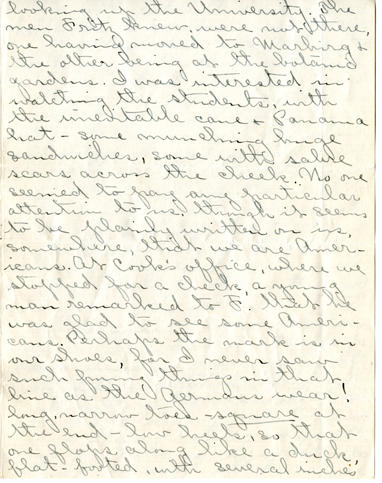 looking up the University. The
men Fritz knew were not there,
one having moved to Marburg &
the other being at the botanic
gardens. I was interested in
watching the students, with
the inevitable cane & Panama
hat - some munching huge
sandwiches, some with sabre
scars across the cheek. No one
seemed to pay any particular
attention to us, though it seems
to be plainly written on us,
somewhere, that we are Amer-
icans. At Cook's office, where we
stopped for a check, a young
man remarked to F. that he
was glad to see some Ameri-
cans. Perhaps the mark is in
our shoes, for I never saw
such funny things in that
line as the Germans wear!
long, narrow toes - square at
the end - low heels, so that
one flops along like a duck,
flat-footed, with several inches